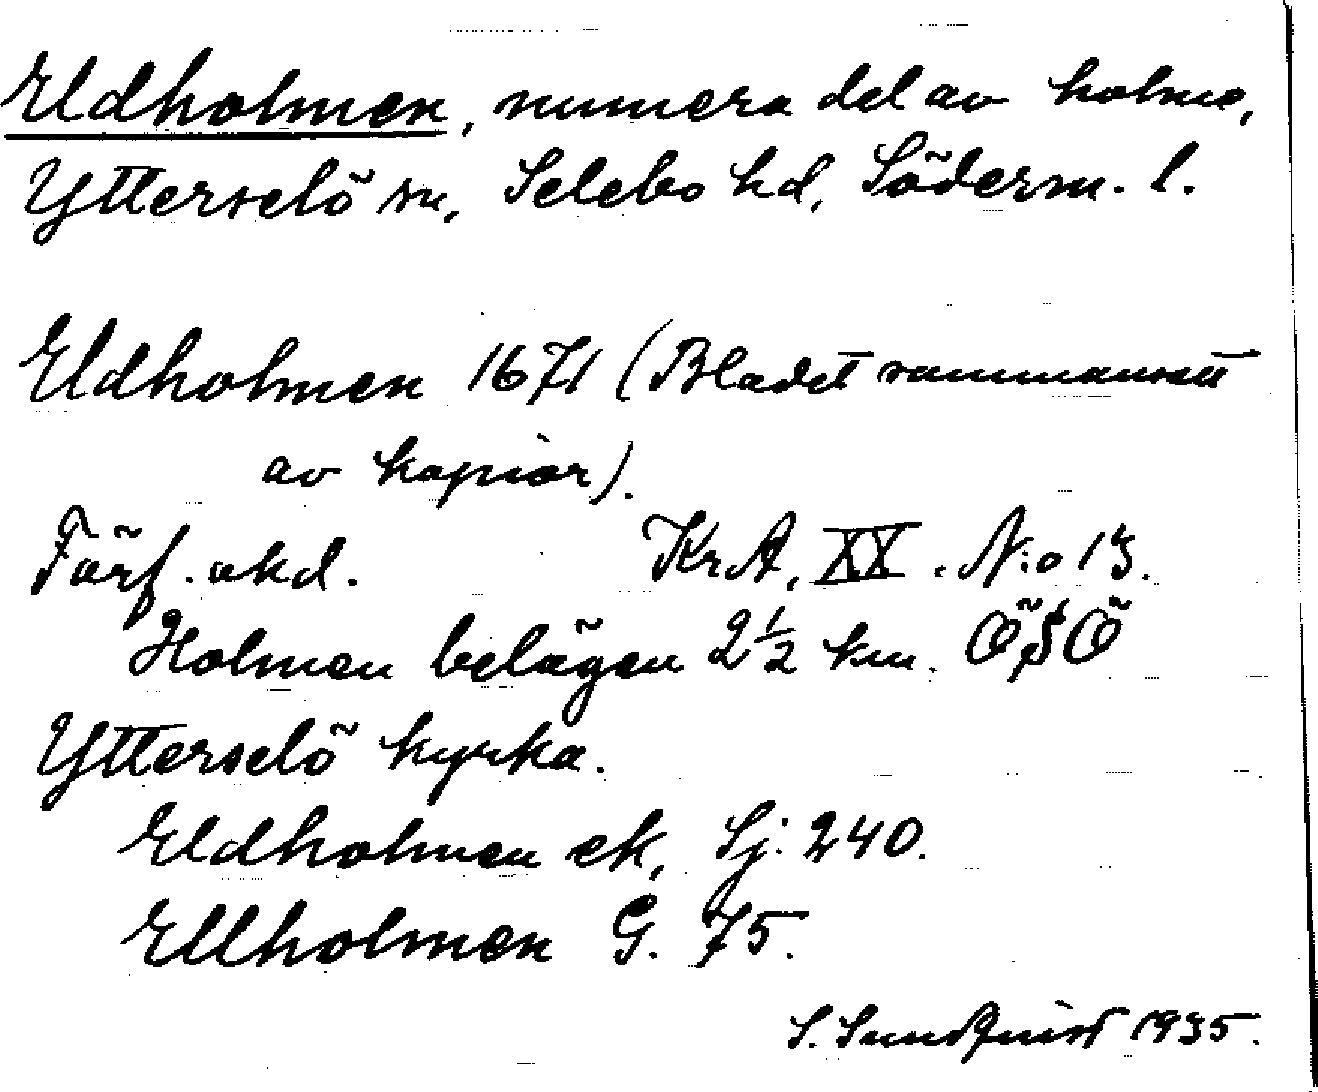 Eldholmen, numera del av holme,
Ytterselö sn, Selebo hd, Söderm. l.
Eldholmen 1671 (Bladet sammansatt
av kopior).
Förf. okd. Kr.A, XX. N:o 13.
Holmen belägen 2½ km. ÖSÖ
Ytterselö kyrka.
Eldholmen ek, Sj: 240.
Ellholmen G. 75.
S. Sundquist 1935.